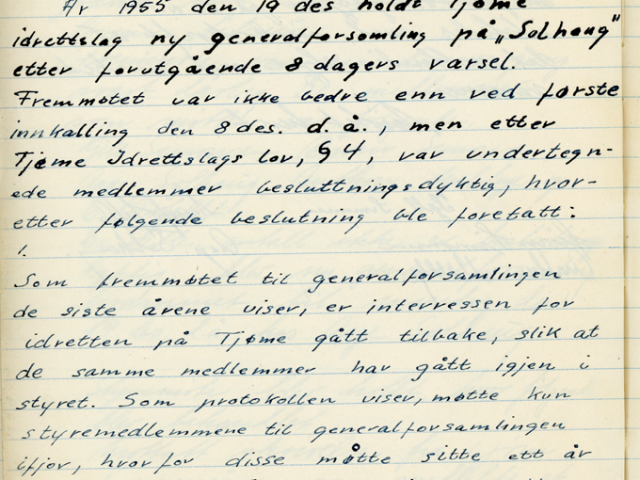 År 1955 den 19 des holdt Tjøme
idrettslag ny generalforsamling på „Solhaug"
etter forutgående 8 dagers varsel.
Fremmøtet var ikke bedre enn ved første
innkalling den 8 des. d. å., men etter
Tjøme Idrettslags lov, § 4, var undertegn-
ede medlemmer besluttningsdyktig, hvor-
etter følgende beslutning ble foretatt:
1.
Som fremmøtet til generalforsamlingen
de siste årene viser, er interressen for
idretten på Tjøme gått tilbake, slik at
de samme medlemmer har gått igjen i
styret. Som protokollen viser, møtte kun
styremedlemmene til generalforsamlingen
ifjor, hvorfor disse måtte sitte ett år